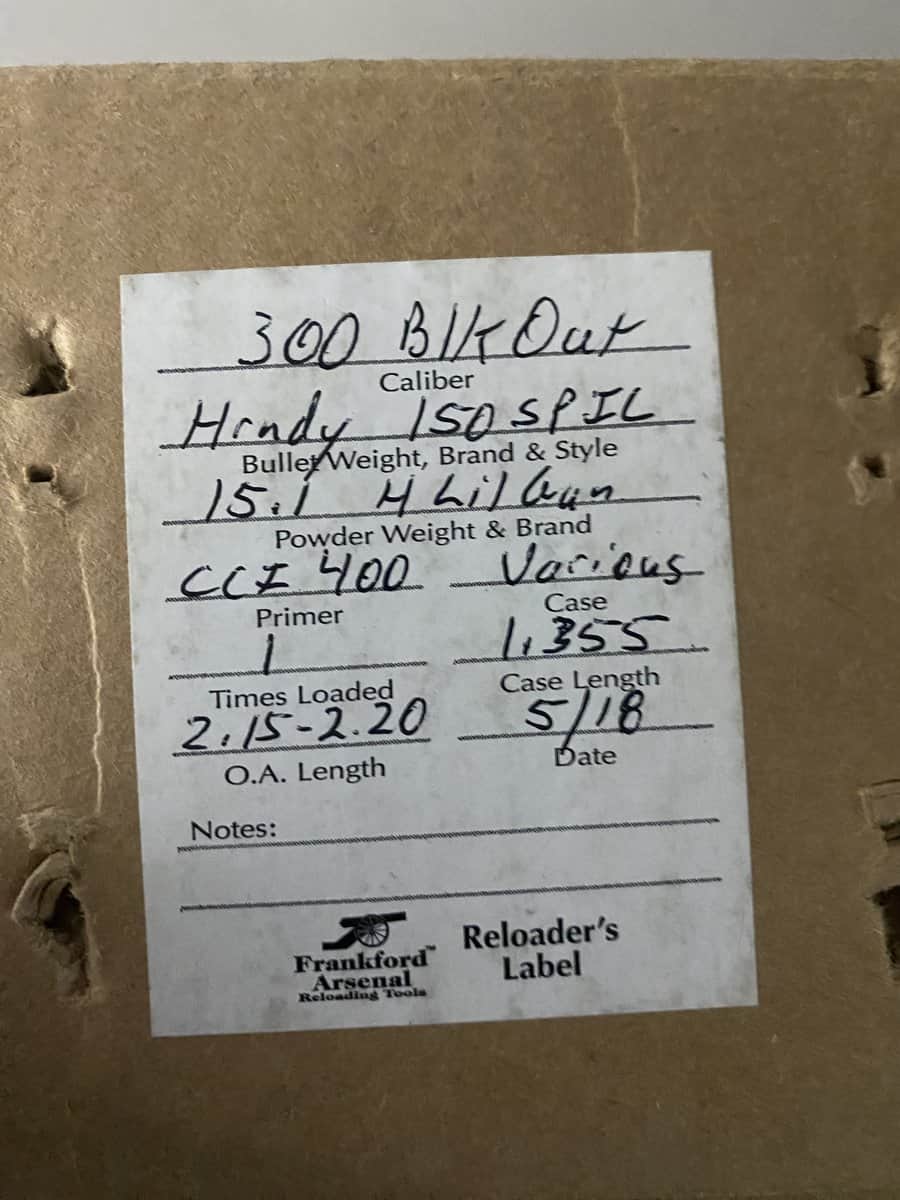 300 Blk Out
Caliber
Hrndy 150 SPIL
Bullet Weight, Brand & Style
15.1 H Lil Gun
Powder Weight & Brand
CCI 400 Various
Primer Case
1 1.355
Times Loaded Case Length
2.15-2.20 5/18
O.A. Length Date
Notes:
Frankford™ Reloader's
Arsenal Label
Reloading Tools